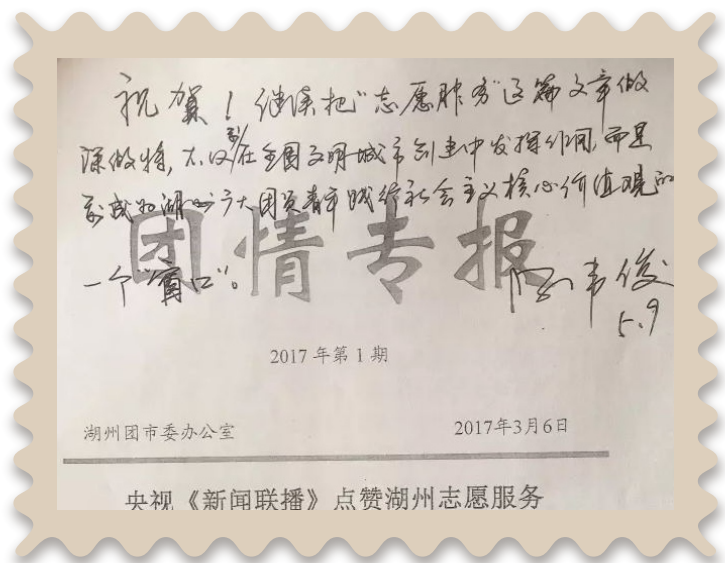 祝贺！继续把“志愿服务”这篇文章做
深做特，不仅要在全国文明城市创建中发挥作用，而是
要成为湖州广大团员青年践行社会主义核心价值观的
一个“窗口”。
韦俊
5.9
团情专报
2017年第1期
湖州团市委办公室 2017年3月6日
央视《新闻联播》点赞湖州志愿服务